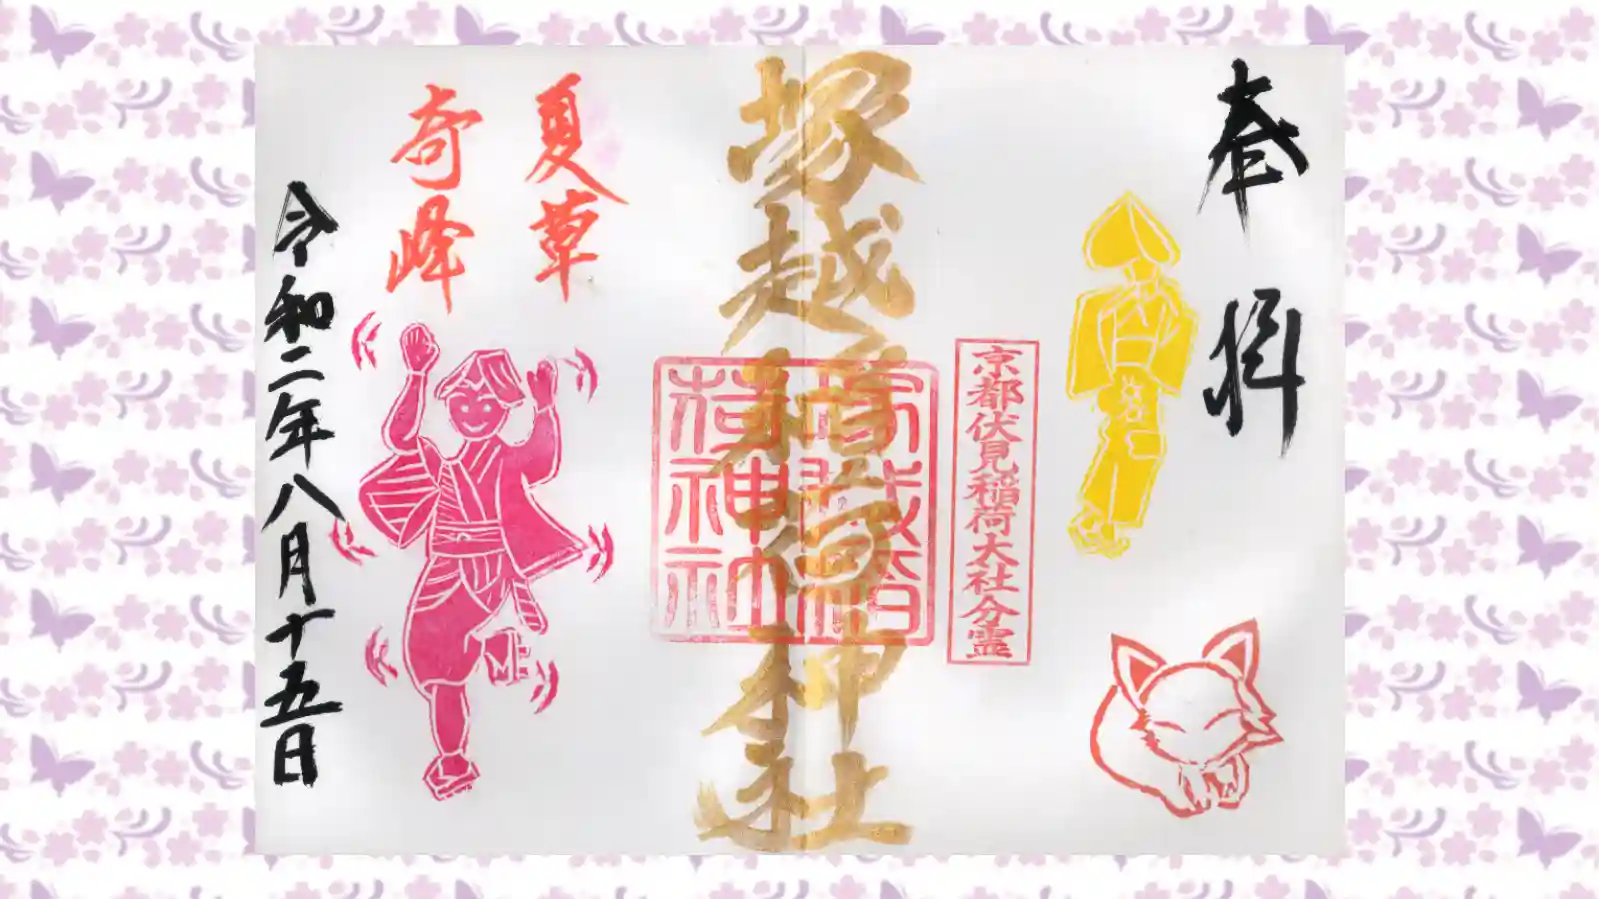 奉拝
京都伏見稲荷大社分霊
塚越稲荷神社
塚越稲荷神社
夏草
奇峰
令和二年八月十五日